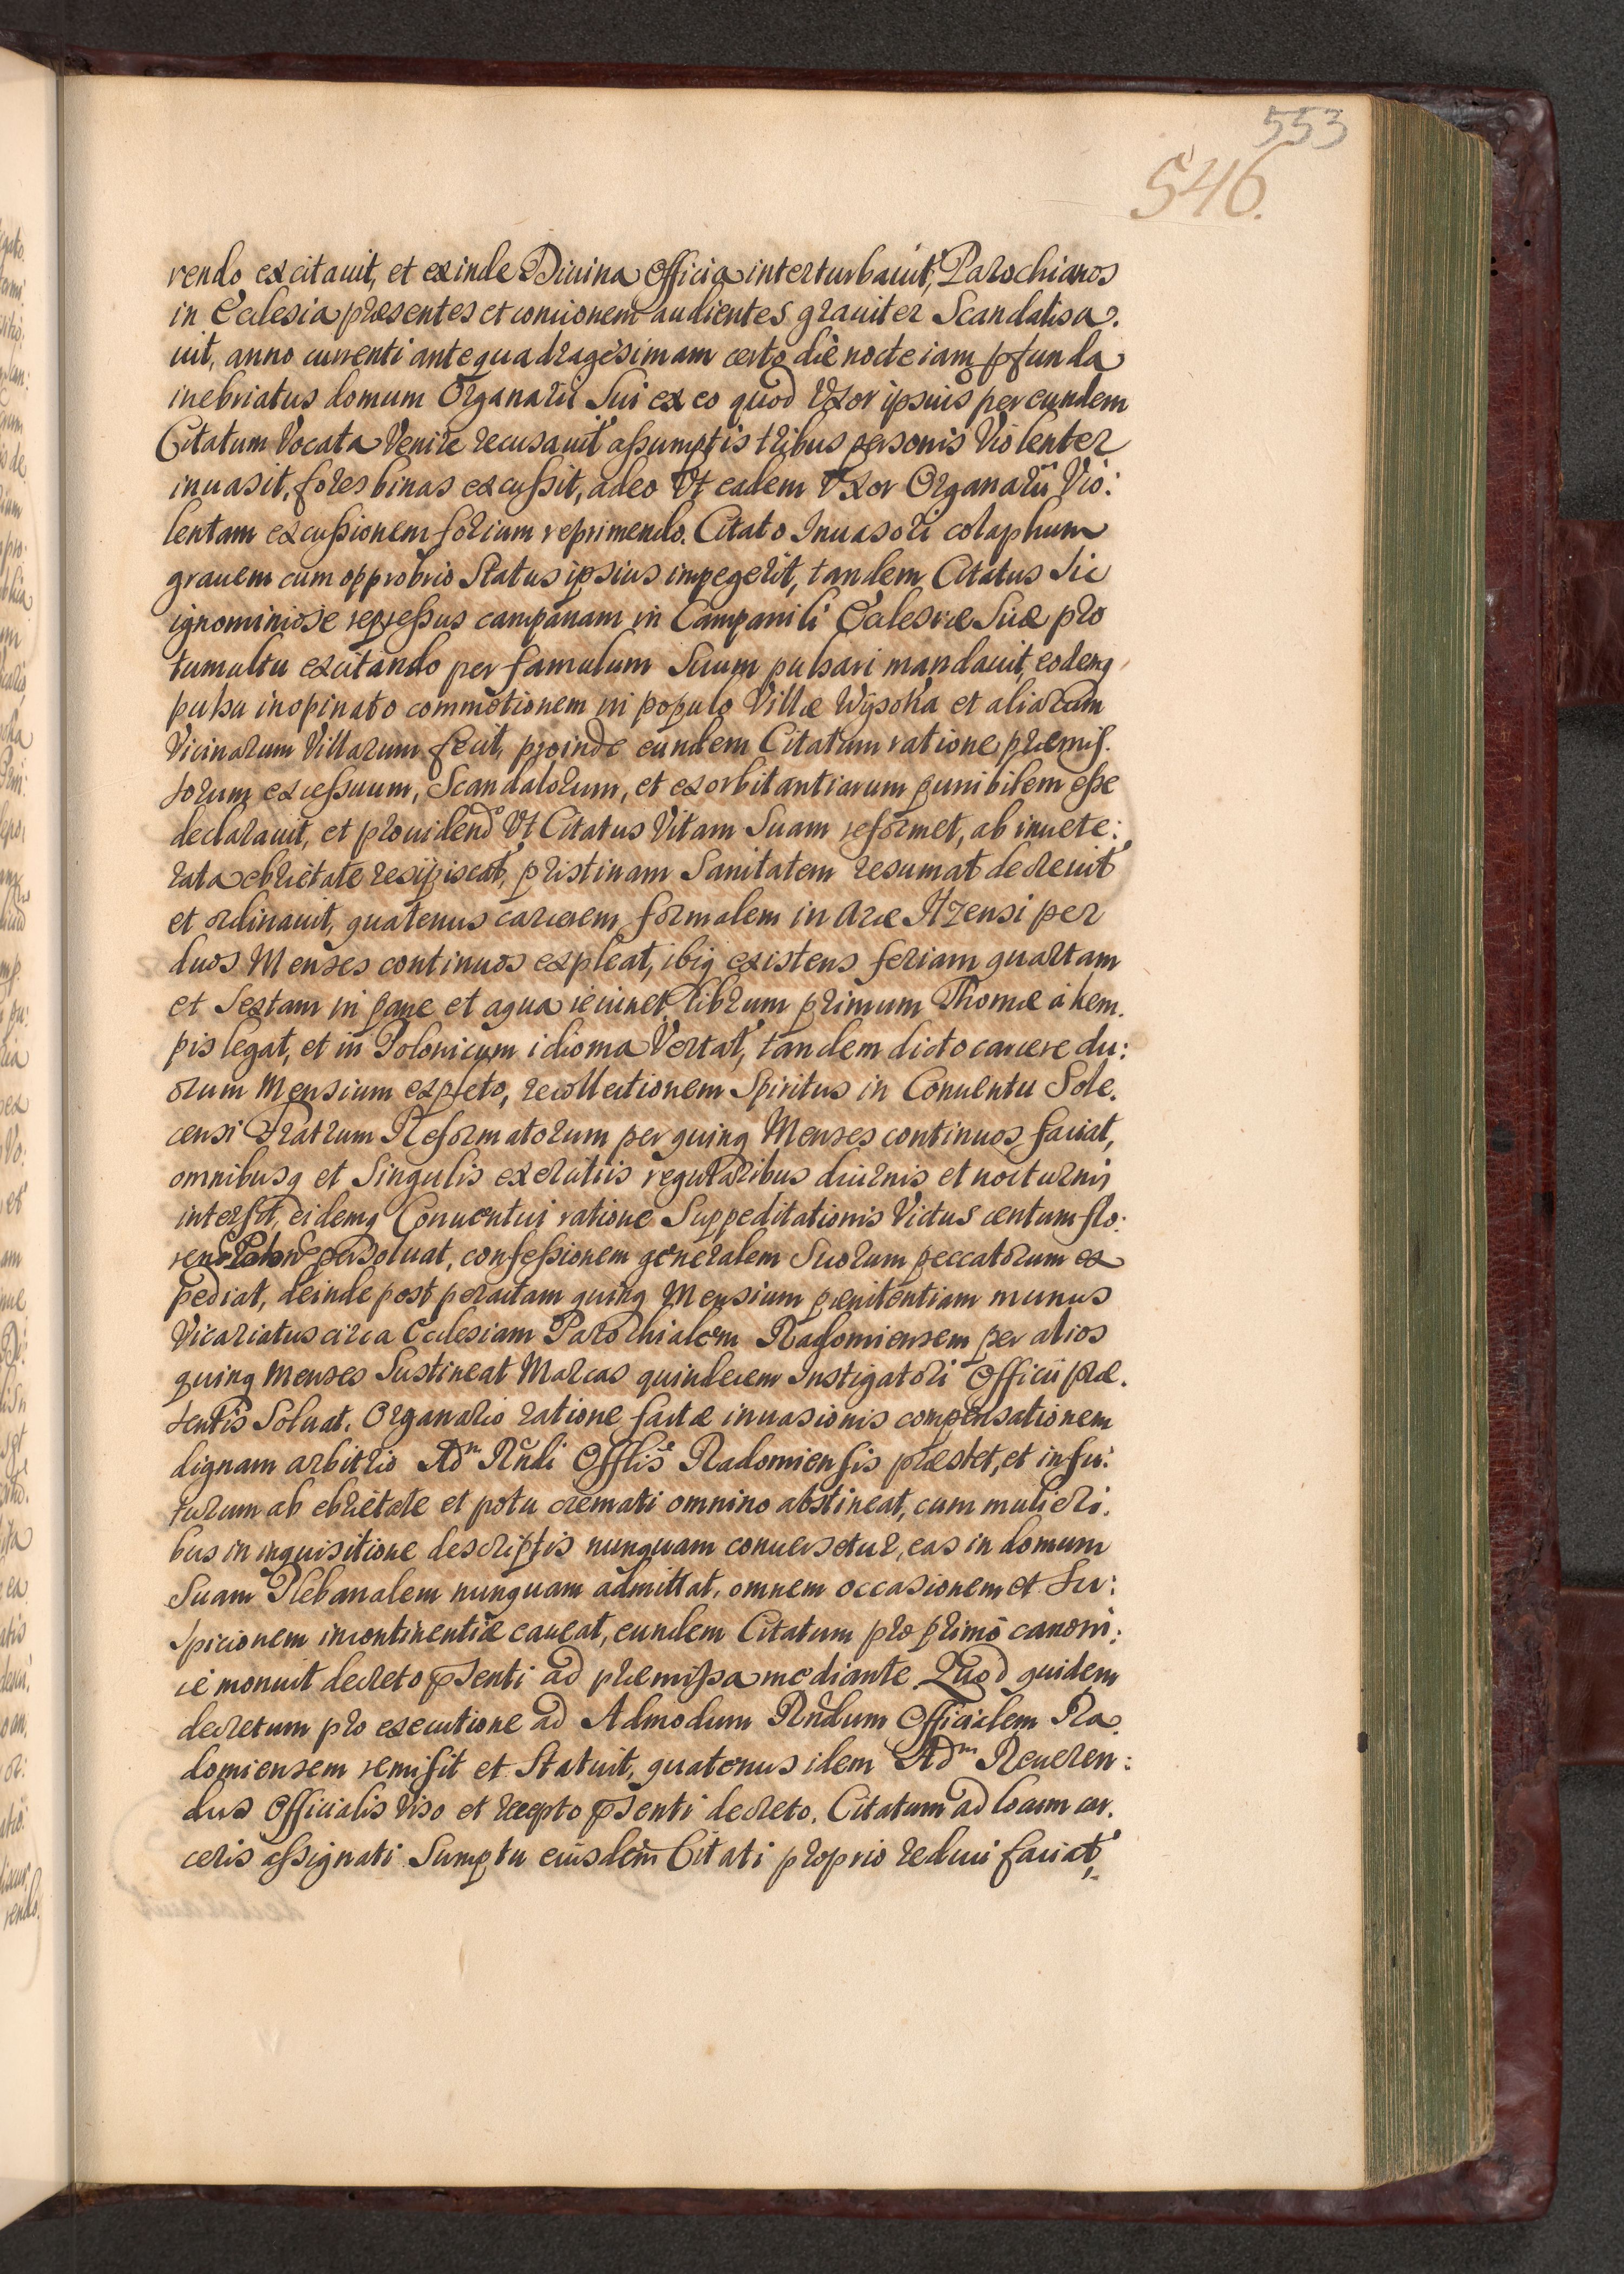 553
546.
rendo excitauit, et exinde Diuina Officia interturbauit, Parochianos
in Ecclesia præsentes et concionem audientes grauiter Scandalisa:
uit, anno currenti ante quadragesimam certo die nocte iam pfunda
inebriatus domum Organarii Sui ex eo quod Uxor ipsius per eundem
Citatum Vocata Venire recusauit assumptis tribus personis Violenter
inuasit, fores binas excussit, adeo Vt eadem Vxor Organarii Vio:
lentam excussionem forium reprimendo. Citato Inuasori colaphum
grauem cum opprobrio Status ipsius impegerit, tandem Citatus Sic
ignominiose repressus campanam in Campanili Ecclesiæ Suæ pro
tumultu excitando per famulum Suum pulsari mandauit, eodemq
pulsu inopinato commotionem in populo Villæ Wysoka et aliarum
Vicinarum Villarum fecit, proinde eundem Citatum ratione præmis.
sorum excessuum, Scandalorum, et exorbitantiarum punibilem esse
declarauit, et prouidendo Vt Citatus Vitam Suam reformet, ab inuete:
rata ebrietate resipiscat, pristinam Sanitatem resumat decreuit
et ordinauit, quatenus carcerem formalem in Arce Itzensi per
duos Menses continuos expleat, ibiq existens feriam quartam
et Sextam in pane et aqua ieiunet, librum primum Thomæ á kem.
pis legat, et in Polonicum idioma Vertat, tandem dicto carcere du:
orum Mensium expleto, recollectionem Spiritus in Conuentu Sole.
censi Fratrum Reformatorum per quinq Menses continuos faciat,
omnibusq et Singulis exercitiis regularibus diurnis et nocturnis
intersit, eidemq Conuentui ratione Suppeditationis Victus centum flo:
persoluat, confessionem generalem Suorum peccatorum ex
pediat, deinde post peractam quinq Mensium pænitentiam munus
Vicariatus circa Ecclesiam Parochialem Radomiensem per alios
quinq Menses Sustineat Marcas quindecem Instigatori Officii præ.
sentis Soluat. Organario ratione factæ inuasionis compensationem
dignam arbitrio Adm Rndi Offlis Radomiensis præstet, et in fu:
turum ab ebrietate et potu cremati omnino abstineat, cum mulieri.
bus in inquisitione descriptis nunquam conuersetur, eas in domum
Suam Plebanalem nunquam admittat, omnem occasionem et Su:
spicionem incontinentiæ caueat, eundem Citatum pro primo canoni:
ce monuit decreto psenti ad præmissa mediante Quod quidem
decretum pro executione ad Admodum Rndum Officialem Ra.
domiensem remisit et Statuit, quatenus idem Adm Reueren:
dus Officialis Viso et recepto psenti decreto, Citatum ad locum car.
ceris assignati Sumptu eiusdem Citati proprio reduci faciat,